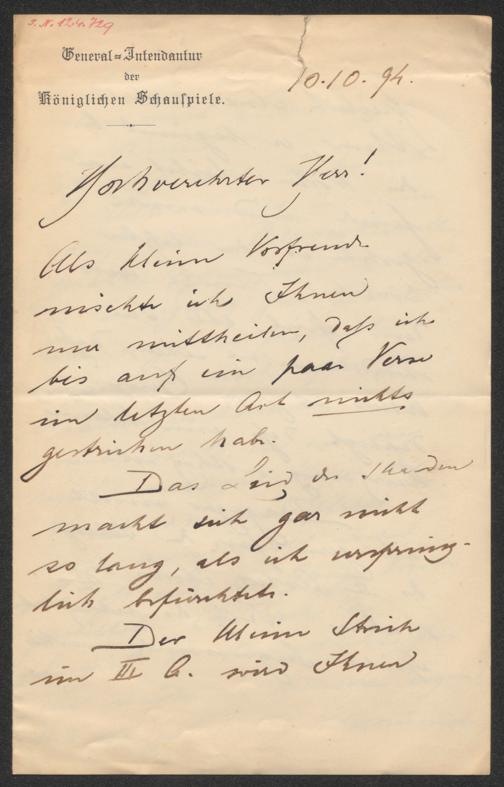 I.N. 124.729
General-Intendantur
der
Königlichen Schauspiele.
10.10.94.
Hochverehrter Herr!
Als kleine Vorfreude
möchte ich Ihnen
nur mittheilen, daß ich
bis auf ein paar Verse
im letzten Act nichts
gestrichen habe.
Das Leid des
macht sich gar nicht
so lang, als ich ursprüng-
lich befürchtete.
Der kleine Strich
im III A. wird Ihnen